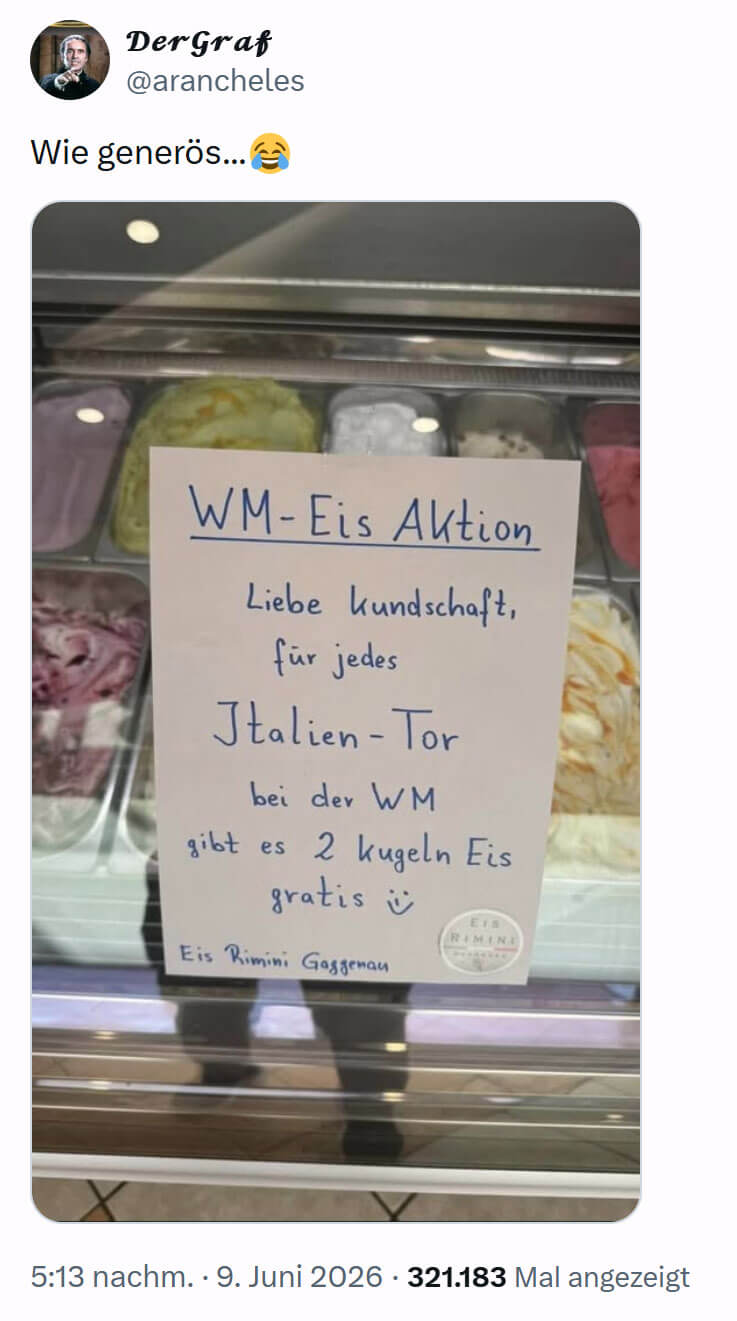 DerGraf
@arancheles
Wie generös...😂
WM-Eis Aktion
Liebe Kundschaft,
für jedes
Italien-Tor
bei der WM
gibt es 2 Kugeln Eis
gratis :)
Eis Rimini Gaggenau
EIS
RIMINI
5:13 nachm. · 9. Juni 2026 · 321.183 Mal angezeigt